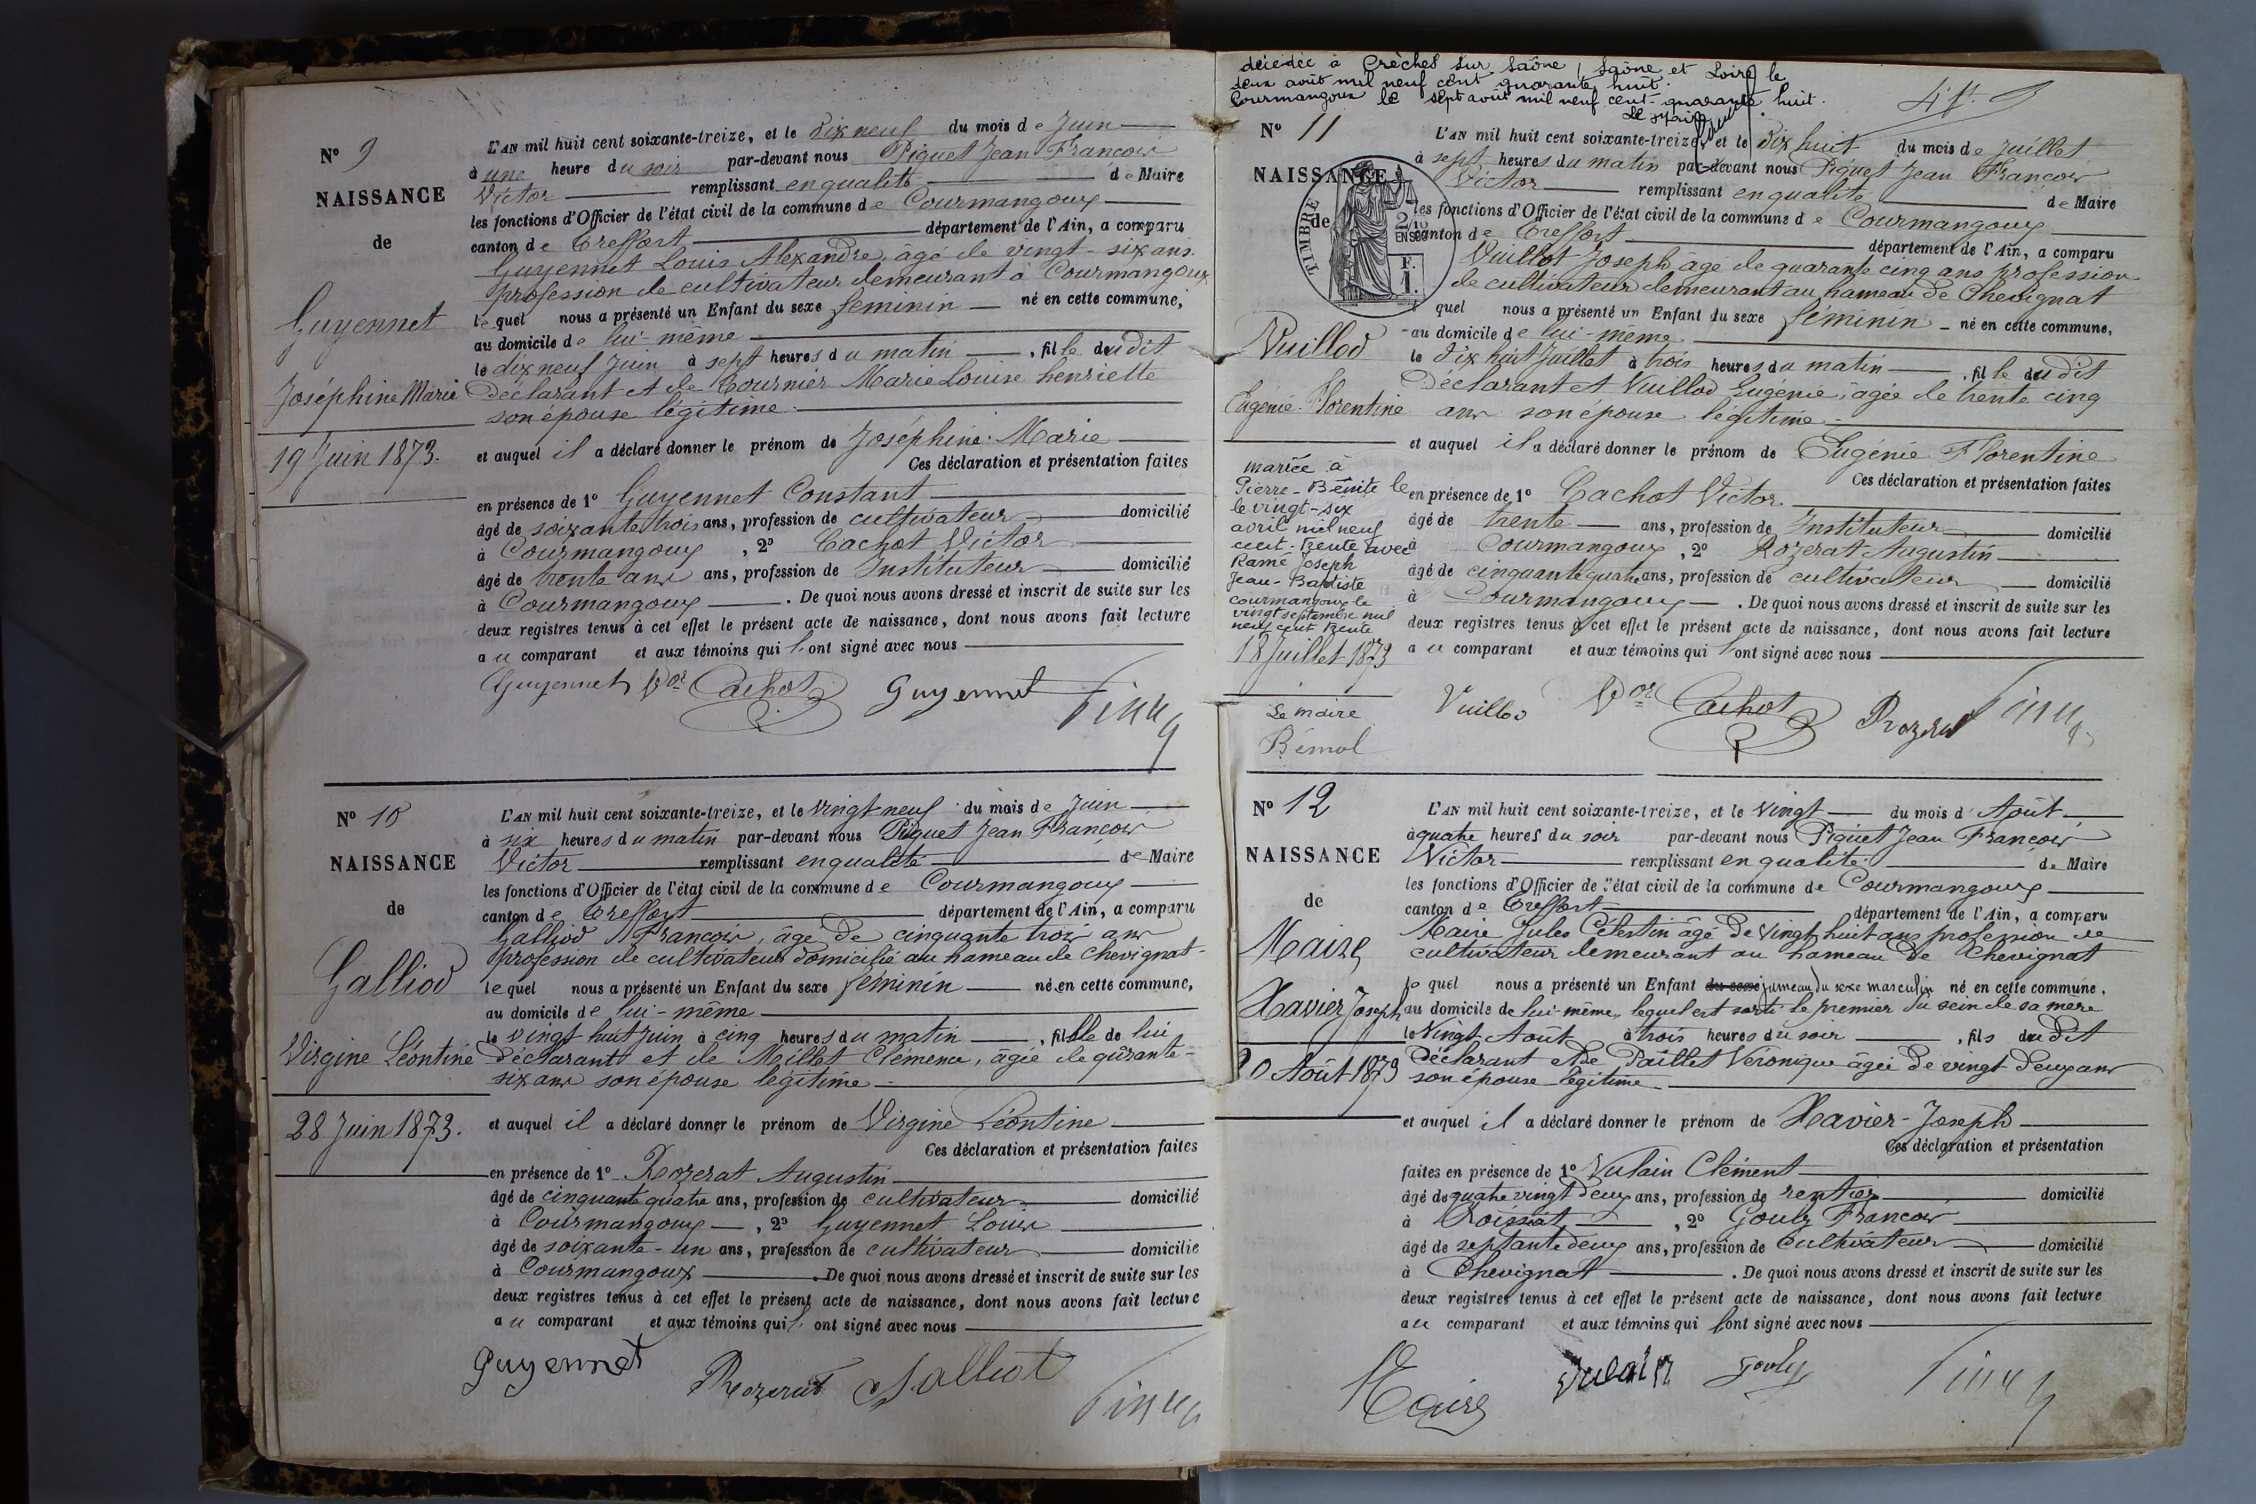 N° 9
NAISSANCE
de
Guyennet
Joséphine Marie
19 Juin 1873.
L'AN mil huit cent soixante-treize, et le dix neuf du mois de Juin
à une heure du soir par-devant nous Piquet Jean François
Victor remplissant en qualité de Maire
les fonctions d'Officier de l'état civil de la commune de Courmangoux
canton de Treffort département de l'Ain, a comparu
Guyennet Louis Alexandre, âgé de vingt-six ans.
profession de cultivateur demeurant à Courmangoux
lequel nous a présenté un Enfant du sexe féminin né en cette commune,
au domicile de lui-même
le dix neuf Juin à sept heures du matin , fille dudit
Déclarant et de Tournier Marie Louise henriette
son épouse légitime.
et auquel il a déclaré donner le prénom de Joséphine-Marie
Ces déclaration et présentation faites
en présence de 1° Guyennet Constant
âgé de soixante trois ans, profession de cultivateur domicilié
à Courmangoux , 2° Cachot Victor
âgé de trente ans ans, profession de Instituteur domicilié
à Courmangoux . De quoi nous avons dressé et inscrit de suite sur les
deux registres tenus à cet effet le présent acte de naissance, dont nous avons fait lecture
au comparant et aux témoins qui l'ont signé avec nous
Guyennet Vor Cachot Guyennet
N° 10
NAISSANCE
de
Galliod
Virgine Léontine
28 Juin 1873.
L'AN mil huit cent soixante-treize, et le vingt-neuf du mois de Juin
à six heures du matin par-devant nous Piquet Jean François
Victor remplissant en qualité de Maire
les fonctions d'Officier de l'état civil de la commune de Courmangoux
canton de Treffort département de l'Ain, a comparu
Galliod François, âgé de cinquante trois ans
profession de cultivateur domicilié au hameau de Chevignat
lequel nous a présenté un Enfant du sexe féminin né en cette commune,
au domicile de lui-même
le vingt huit Juin à cinq heures du matin , fille de lui
déclarant et de Millet Clémence, âgée de qurante-
six ans son épouse légitime
et auquel il a déclaré donner le prénom de Virgine Léontine
Ces déclaration et présentation faites
en présence de 1° Rozerat Augustin
âgé de cinquante quatre ans, profession de cultivateur domicilié
à Courmangoux , 2° Guyennet Louis
âgé de soixante-un ans, profession de cultivateur domicilié
à Courmangoux . De quoi nous avons dressé et inscrit de suite sur les
deux registres tenus à cet effet le présent acte de naissance, dont nous avons fait lecture
au comparant et aux témoins qui l'ont signé avec nous
Guyennet Rozerat Galliot
décédée à Crèches sur Saône, Saône et Loire le
deux août mil neuf cent quarante huit.
Courmangoux le sept août mil neuf cent-quarante huit.
Le Maire
N° 11
NAISSANCE
de
TIMBRE
2/10
EN SUS
F.
1.
Vuillod
Eugénie-Florentine
mariée à
Pierre-Bénite le
le vingt-six
avril mil neuf
cent-trente avec
Ramé Joseph
Jean-Baptiste
courmangoux le
vingt septembre mil
neuf cent trente
18 Juillet 1873
Le maire
L'AN mil huit cent soixante-treize, et le dix huit du mois de Juillet
à sept heures du matin par-devant nous Piquet Jean François
Victor remplissant en qualité de Maire
les fonctions d'Officier de l'état civil de la commune de Courmangoux
canton de Treffort département de l'Ain, a comparu
Vuillot Joseph âgé de quarante cinq ans profession
de cultivateur demeurant au hameau de Chevignat
quel nous a présenté un Enfant du sexe féminin né en cette commune,
au domicile de lui-même
le dix huit Juillet à trois heures du matin , fille dudit
Déclarant et Vuillod Eugénie, âgée de trente cinq
ans son épouse légitime
et auquel il a déclaré donner le prénom de Eugénie Florentine
Ces déclaration et présentation faites
en présence de 1° Cachot Victor
âgé de trente ans, profession de Instituteur domicilié
à Courmangoux , 2° Rozerat Augustin
âgé de cinquante quatre ans, profession de cultivateur domicilié
à Courmangoux . De quoi nous avons dressé et inscrit de suite sur les
deux registres tenus à cet effet le présent acte de naissance, dont nous avons fait lecture
au comparant et aux témoins qui l'ont signé avec nous
Vuillod Vor Cachot Rozerat
N° 12
NAISSANCE
de
Maire
Xavier Joseph
20 Août 1873
L'AN mil huit cent soixante-treize, et le vingt du mois d'Août
à quatre heures du soir par-devant nous Piquet Jean François
Victor remplissant en qualité de Maire
les fonctions d'Officier de l'état civil de la commune de Courmangoux
canton de Treffort département de l'Ain, a comparu
Maire Jules Célestin âgé de vingt huit ans profession de
cultivateur demeurant au hameau de Chevignat
le quel nous a présenté un Enfant du sexe jumeau du sexe masculin né en cette commune,
au domicile de lui-même, lequel est sorti le premier du sein de sa mère
le vingt Août à trois heures du soir , fils dudit
Déclarant et de Paillet Véronique âgée de vingt deux ans
son épouse légitime
et auquel il a déclaré donner le prénom de Xavier-Joseph
Ces déclaration et présentation
faites en présence de 1° Vulain Clément
âgé de quatre vingt deux ans, profession de rentier domicilié
à Roissiat , 2° Gouly François
âgé de septante deux ans, profession de Cultivateur domicilié
à Chevignat . De quoi nous avons dressé et inscrit de suite sur les
deux registres tenus à cet effet le présent acte de naissance, dont nous avons fait lecture
au comparant et aux témoins qui l'ont signé avec nous
Maire Vulain Gouly